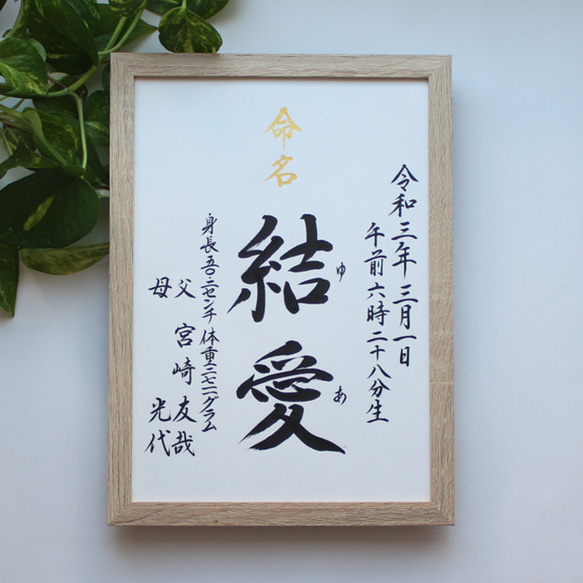 命名
令和三年三月一日
午前六時二十八分生
結愛
ゆあ
身長五〇・二センチ 体重三七二一グラム
父 宮崎 友哉
母 光代